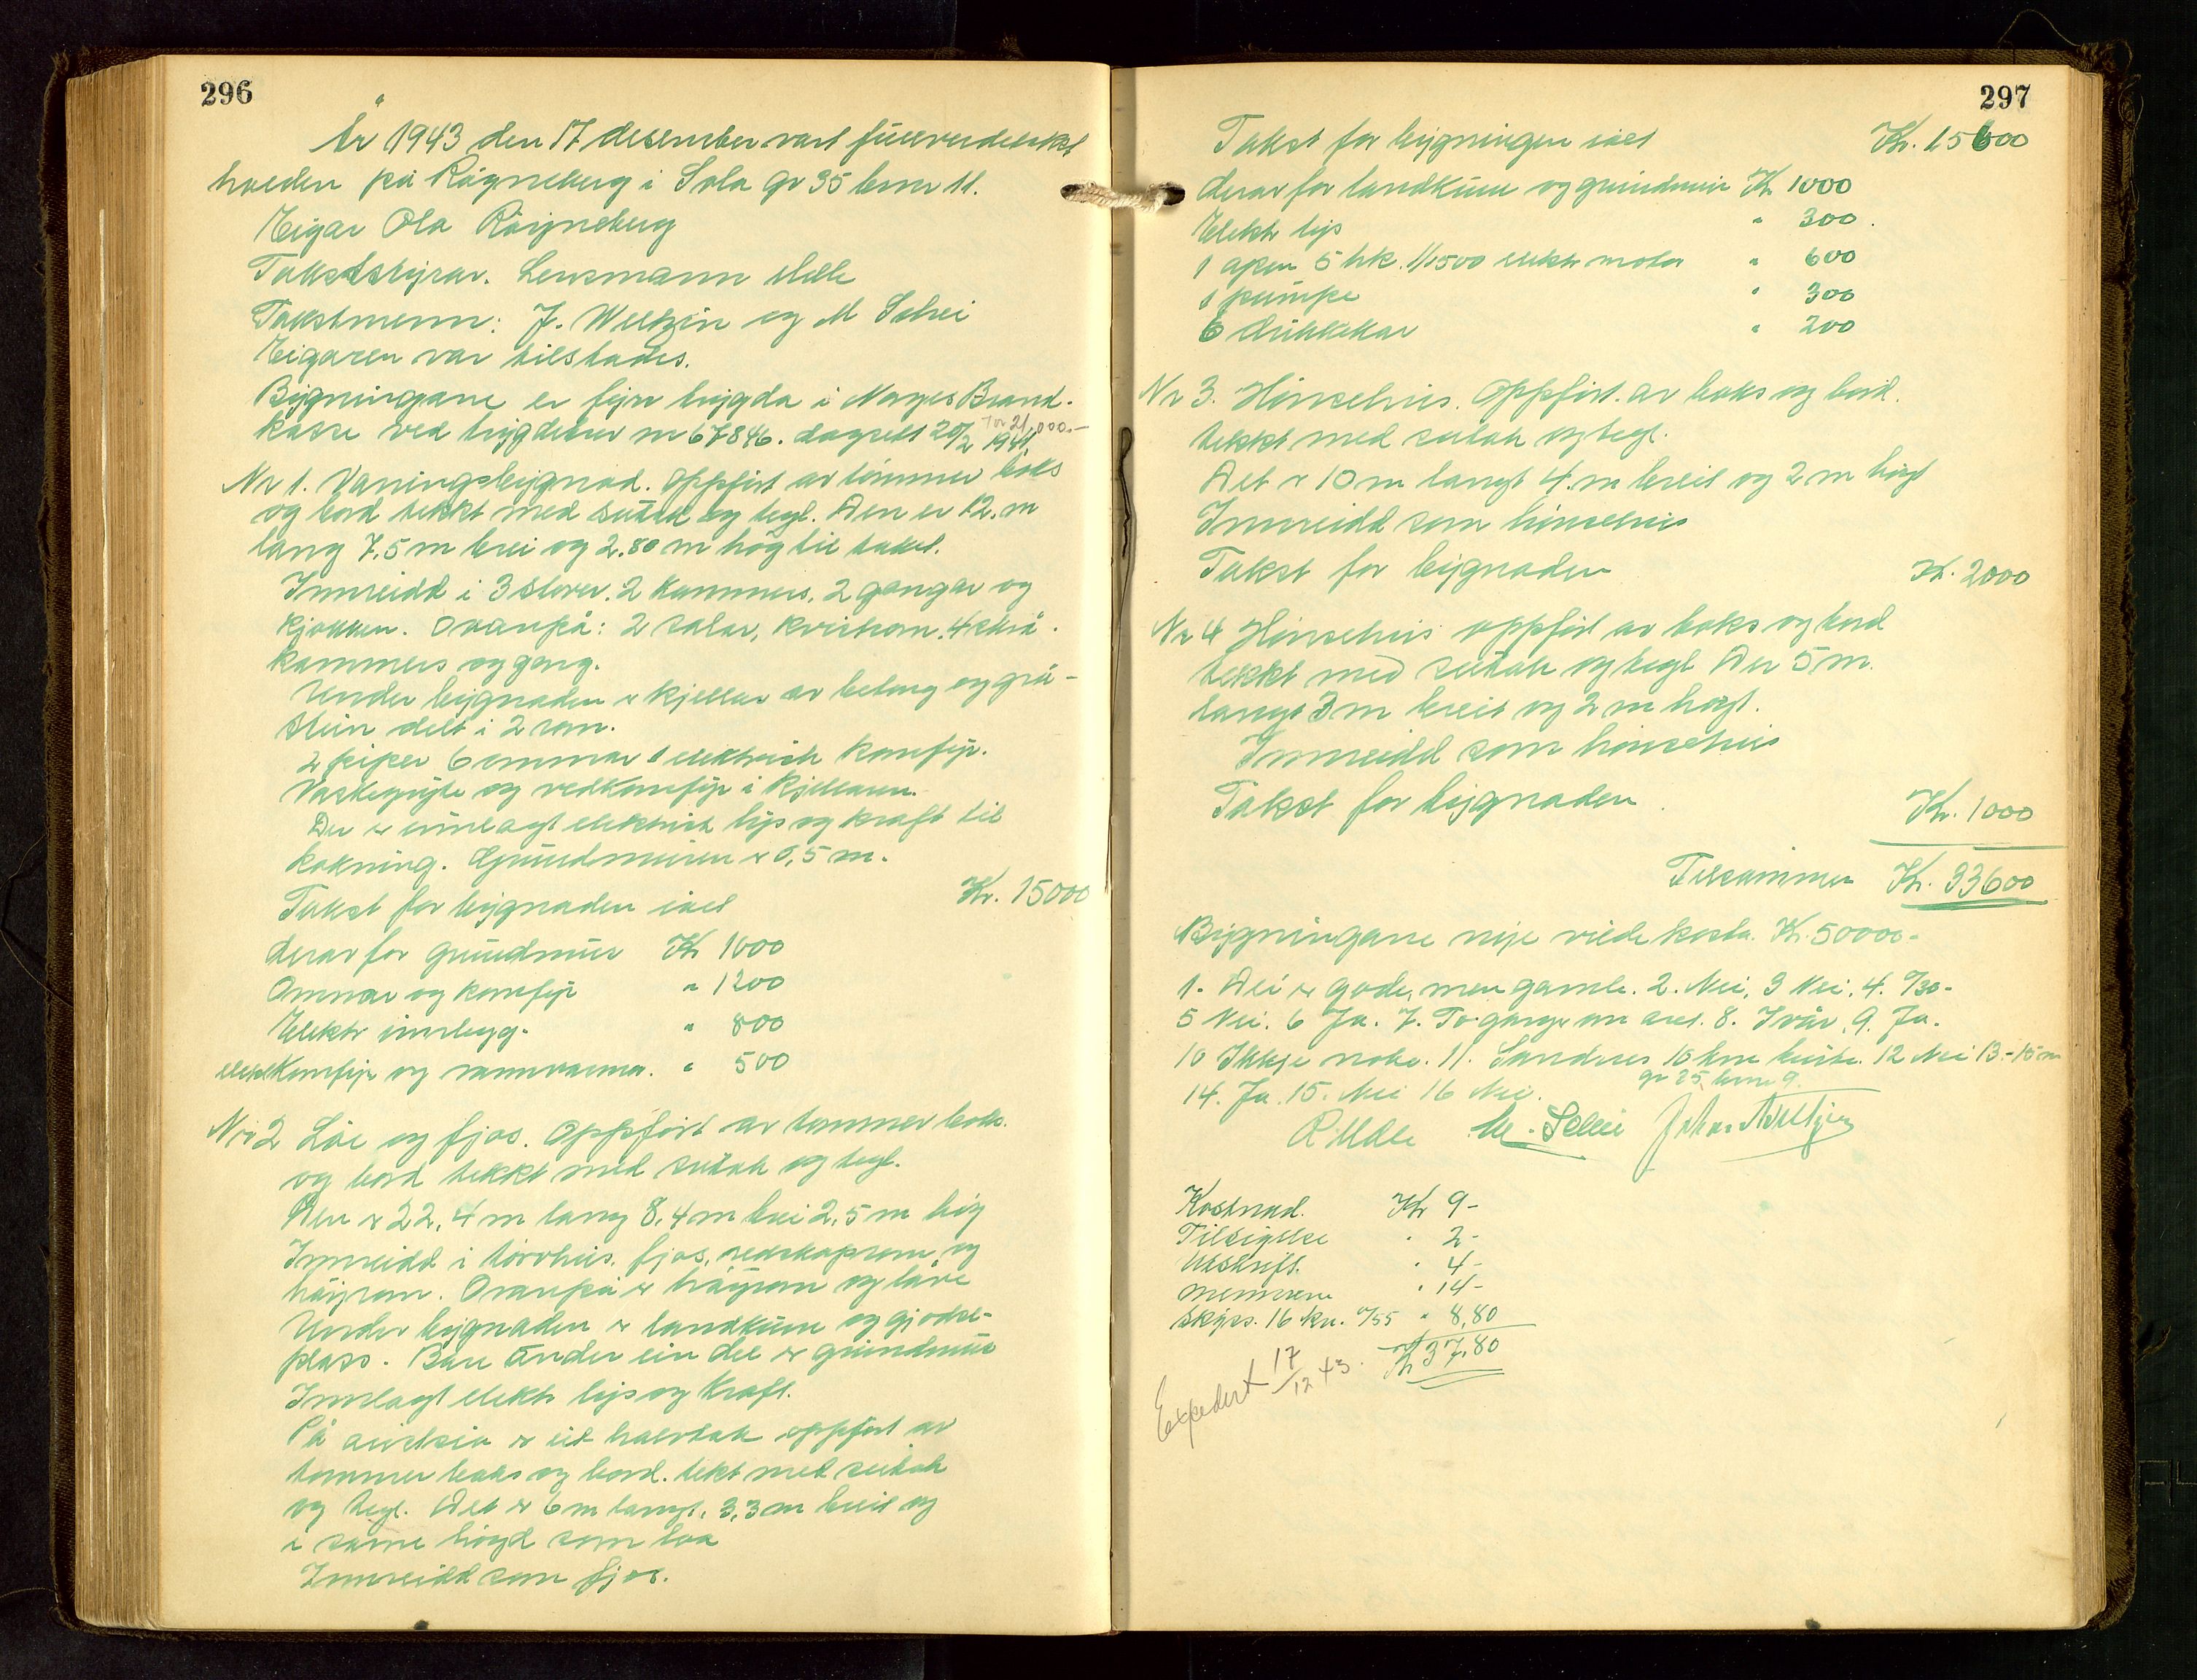 296
År 1943 den 17 desember vart fullverdetakst
halden på Røyneberg i Sola gr 35 brnr 11.
Eigar Ola Røyneberg
Takststyrar. Lensmann Melle
Takstmenn: J. Weltzin og M Selei
Eigaren var tilstades.
Bygningane er fyrr trygda i Norges Brand-
for 21,000.-
kasse ved trygdebrev nr 67846. dagsett 20/2 1941
Nr 1. Vaningsbygnad. Oppførd av tømmer boks
og bord tekkt med sutak og tegl. Den er 12. m
lang 7,5 m brei og 2.80 m høg til taket.
Innreidd i 3 stover. 2 kammers, 2 gangar og
kjøkken. Ovanpå: 2 salar, kvistrom. 4 skrå-
kammers og gang.
Under bygnaden er kjellar av betong og grå-
stein delt i 2 rom.
2 piper 6 omnar 1 elektrisk komfyr.
Vaskegryte og vedkomfyr i kjellaren.
Der er innlagt elektrisk lys og kraft til
kokning. Grundmuren er 0,5 m.
Takst for bygnaden ialt Kr. 15000
derav for grundmur Kr 1000
Omnar og komfyr " 1200
Elektr innlegg. " 800
elektr Komfyr og varmvatn. " 500
Nr 2 Løe og fjos. Oppførd av tømmer boks.
og bord tekkt med sutak og tegl.
Den er 22,4 m lang 8,4 m brei 2,5 m høg
Innreidd i torvhus, fjos, redskapsrom og
høyrom. Ovanpå er høyrom og låve
Under bygnaden er landkum og gjødsel-
plass. Bare under ein del er grundmur
Innlagt elektr lys og kraft.
På austsia er eit halvtak oppført av
tømmer boks og bord. tekt med sutak
og tegl. Det er 6 m langt, 3,3 m breit og
i same høgd som løa
Innreidd som fjos.
297
Takst for bygningen ialt Kr. 15600
derav for landkum og grundmur Kr 1000
Elektr lys " 300.
1 open 5 hk. 1/1500 elektr motor " 600
1 pumpe " 300
6 drikkekar " 200
Nr 3. Hønsehus. Oppført av boks og bord.
tekkt med sutak og tegl.
Det er 10 m langt 4 m breit og 2 m høgt
Innreidd som hønsehus
Takst for bygnaden Kr. 2000
Nr 4 Hønsehus oppført av boks og bord
tekkt med sutak og tegl Der 5 m.
langt 3 m breit og 2 m høgt.
Innreidd som hønsehus
Takst for bygnaden. Kr. 1000
Tilsammen Kr. 33600
Bygningane nye vilde kosta. Kr. 50000-
1. Dei er gode, men gamle. 2. Nei, 3 Nei. 4. 1/30-
5 Nei. 6 Ja. 7. To gangar um året. 8. Ivår, 9. Ja.
10 Ikkje noko. 11. Sandnes 10 km burte. 12 Nei 13.-15 m
gr 25, brnr 9.
14. Ja. 15. Nei 16 Nei.
R Melle M. Selei Johan Weltzin
Kostnad. Kr 9-
Tilsigelse " 2-
Utskrift. " 4-
mennene " 14-
skyss. 16 km. á/55 " 8,80
Kr 37,80
Expedert 17/12 43.